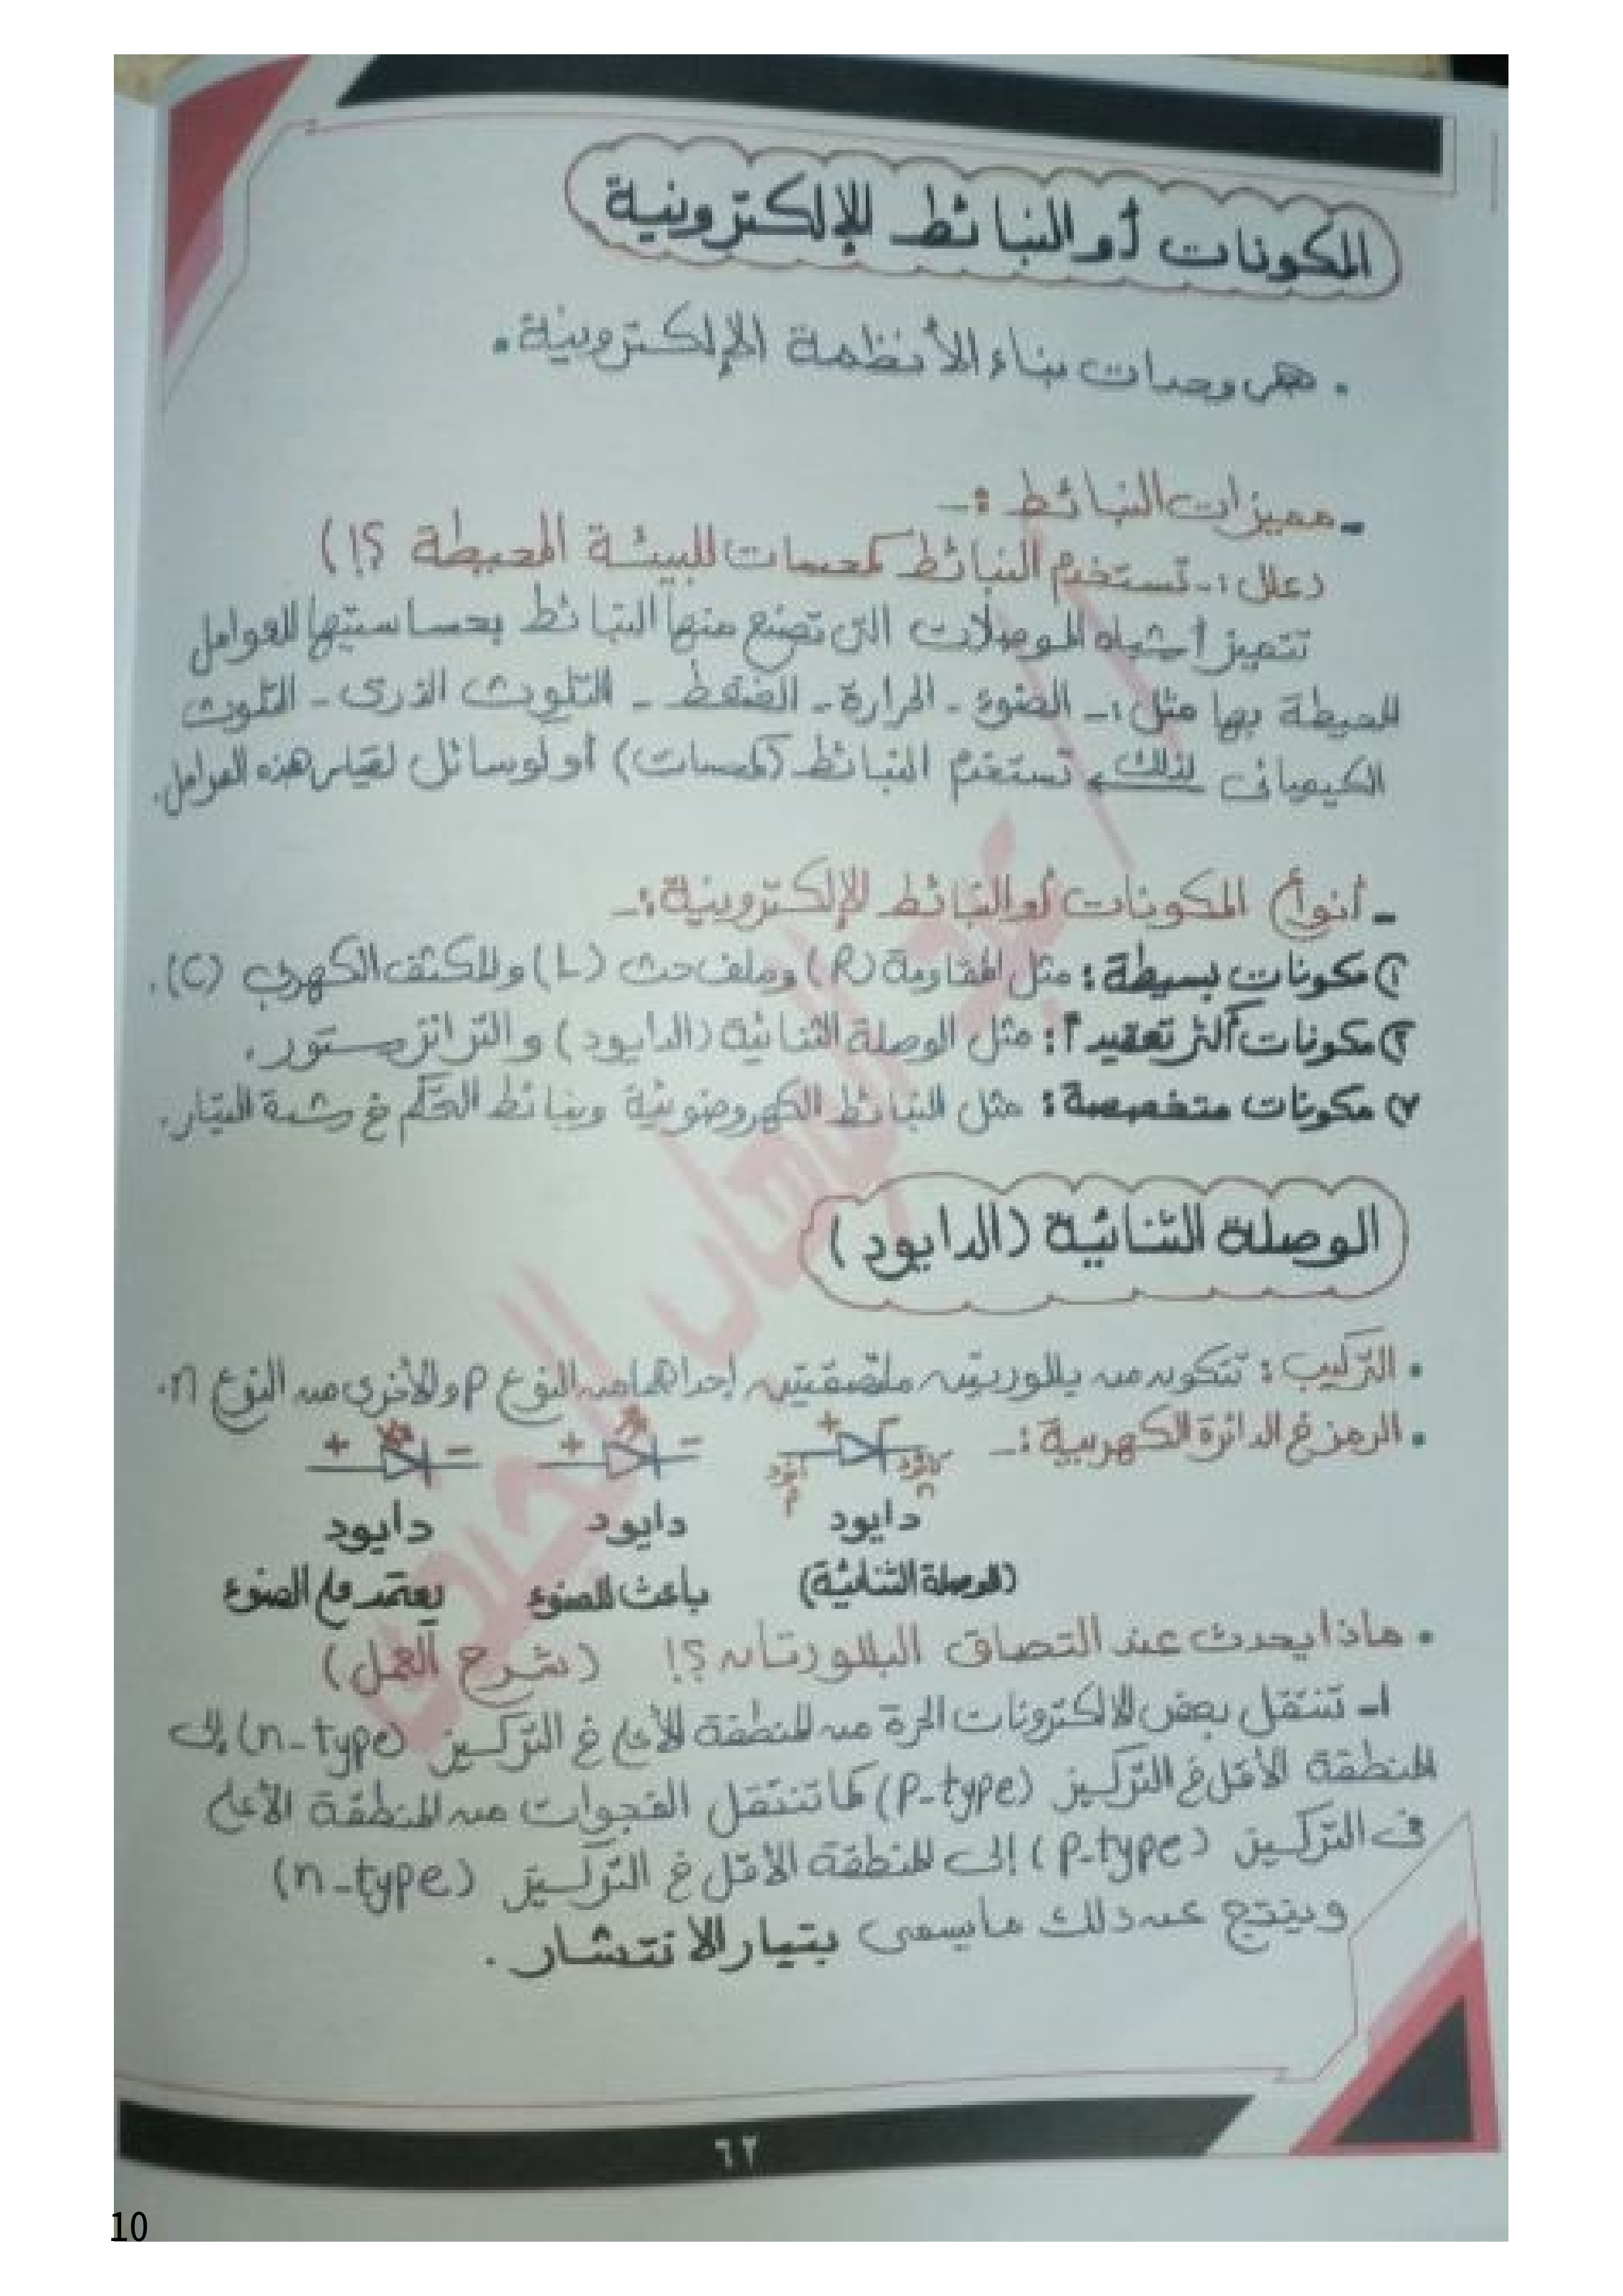 المكونات أو النبائط الإلكترونية
. هى وحدات بناء الأنظمة الإلكترونية.
- مميزات النبائط :-
(علل :- تستخدم النبائط كمحسات للبيئة المحيطة ؟!)
تتميز أشباه الموصلات التى تصنع منها النبائط بحساسيتها للعوامل
المحيطة بها مثل :- الضوء - الحرارة - الضغط - التلوث الذرى - التلوث
الكيميائى لذلك تستخدم النبائط (كمحسات) أو لوسائل لقياس هذه العوامل.
- أنواع المكونات أو النبائط الإلكترونية :-
١) مكونات بسيطة : مثل المقاومة (R) وملف حث (L) والمكثف الكهربى (C).
٢) مكونات أكثر تعقيداً : مثل الوصلة الثنائية (الدايود) والترانزستور.
٣) مكونات متخصصة : مثل النبائط الكهروضوئية ونبائط التحكم فى شدة التيار.
الوصلة الثنائية (الدايود)
. التركيب : تتكون من بللورتين ملتصقتين إحداهما من النوع p والأخرى من النوع n.
. الرمز فى الدائرة الكهربية :-
+ - + - + -
أنود كاثود
p n
دايود دايود دايود
(الوصلة الثنائية) باعث للضوء يعتمد على الضوء
. ماذا يحدث عند التصاق البللورتان ؟! (شرح العمل)
١- تنتقل بعض الالكترونات الحرة من المنطقة الأعلى فى التركيز (n-type) إلى
المنطقة الأقل فى التركيز (p-type) كما تنتقل الفجوات من المنطقة الأعلى
فى التركيز (p-type) إلى المنطقة الأقل فى التركيز (n-type)
وينتج عن ذلك ما يسمى بتيار الانتشار.
٦٢
10